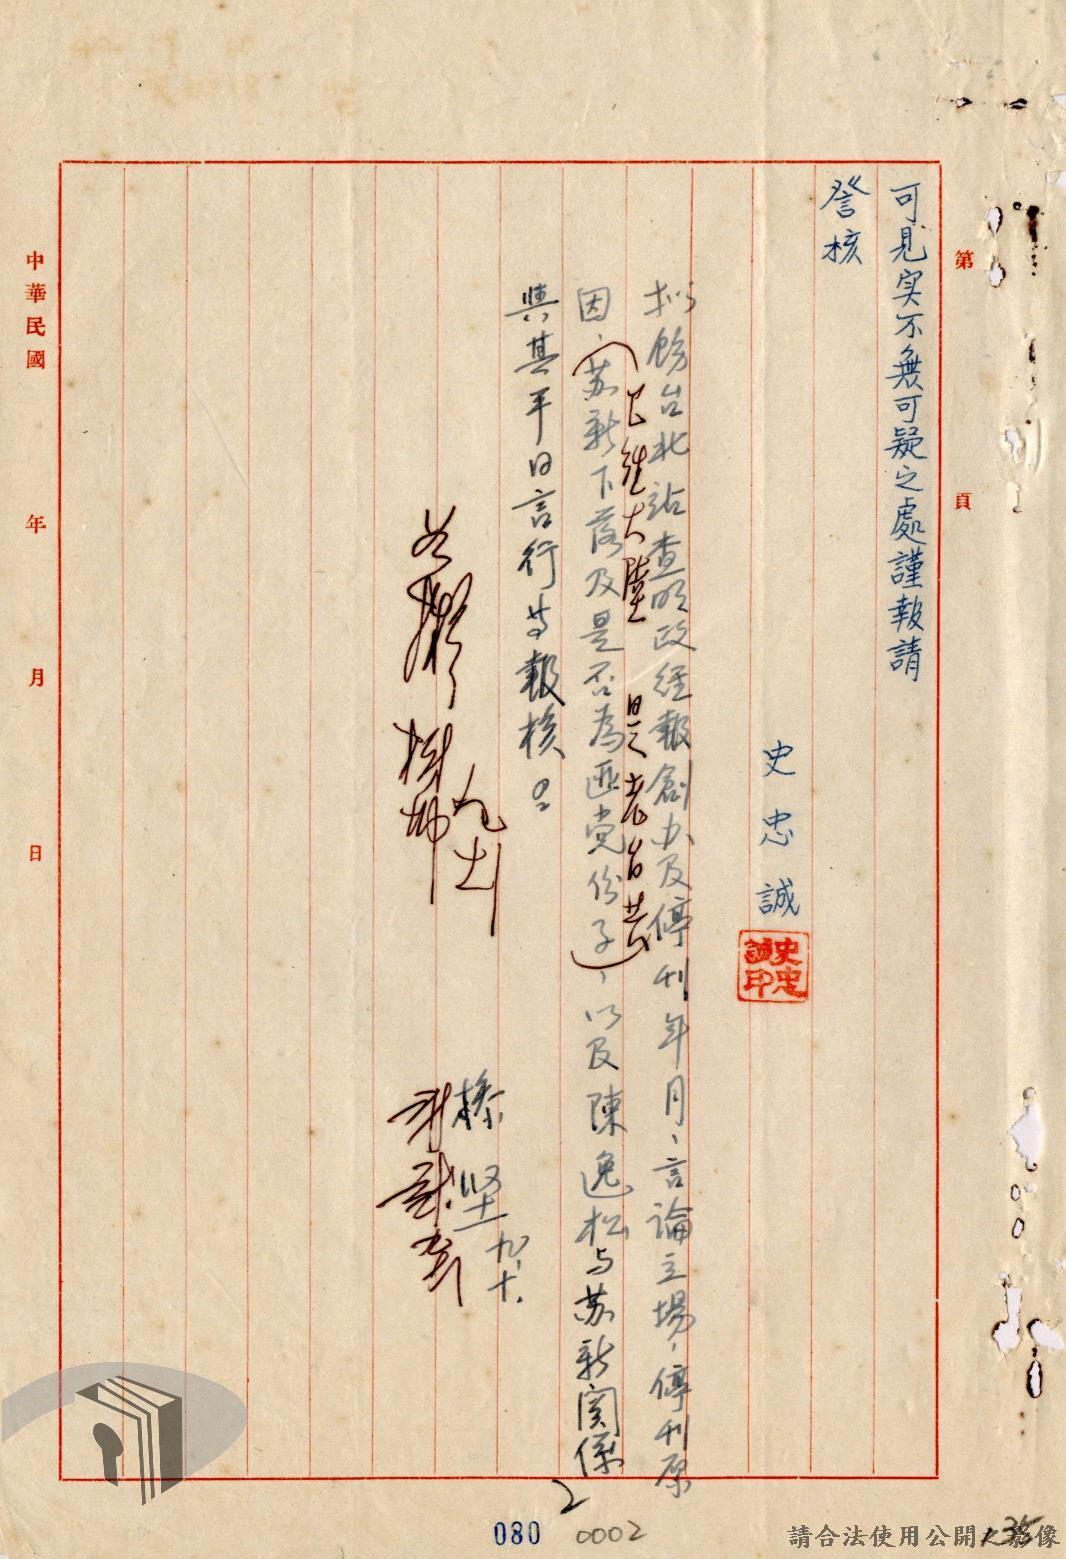 第 頁
可見実不無可疑之處謹報請
詧核
史忠誠
史忠誠印
拟飭台北站查明政經報創办及停刊年月、言論立場、停刊原
因、(苏新下落及是否為匪党份子)、以及陳逸松与苏新関係
已往大陸 是老台共
與其平日言行等報核。
如擬
九、十.
中華民國 年 月 日
2
080
0002
135
請合法使用公開之影像